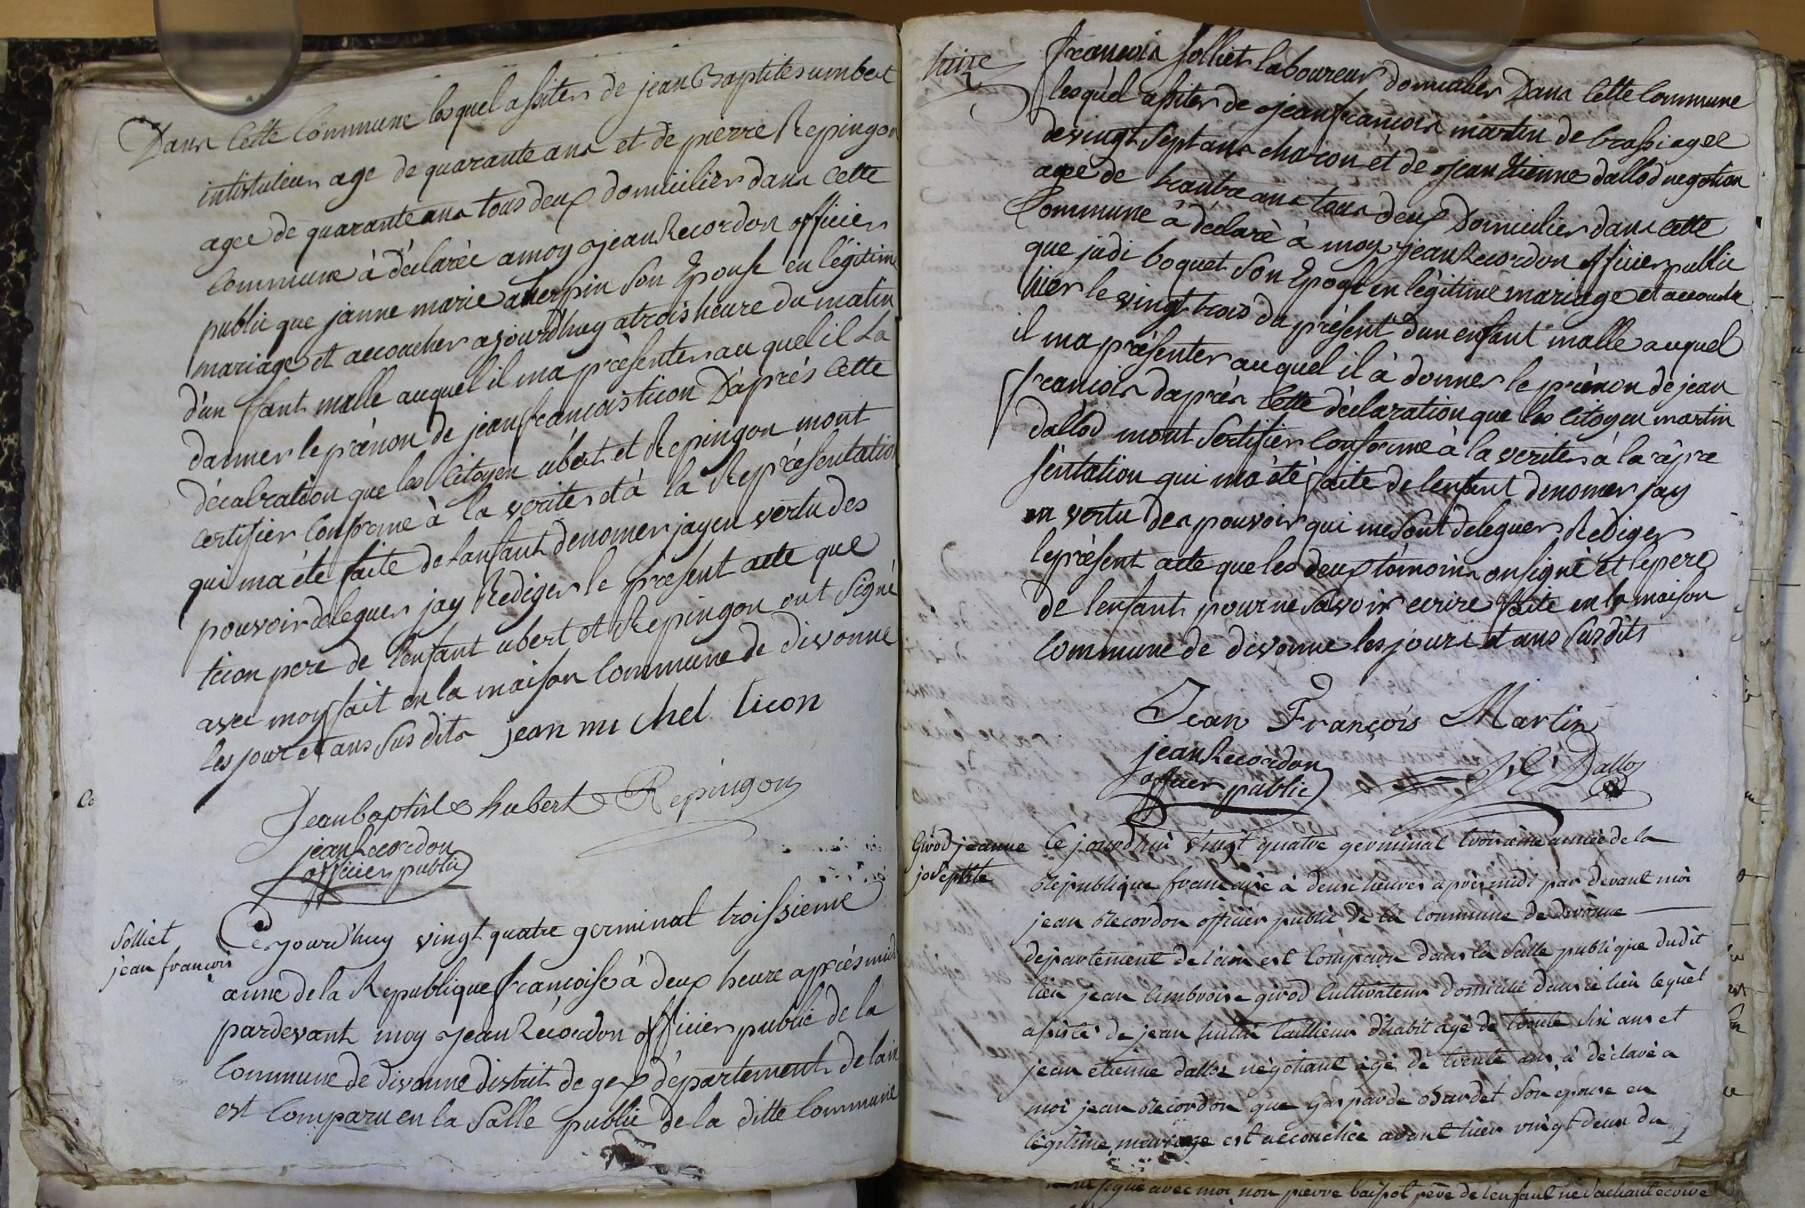 Dans Cette Commune lesquel assiter de jean Baptite humbert
intistuteur age de quarante ans et de pierre Repingon
agee de quarante ans tous deux domicilier dans Cette
Commune à déclarée a moy jean Recordon officier
public que janne marie Epouse en légitime
mariage et accoucher ajourdhuy a trois heure du matin
d'un fant malle auquel il ma présenter au quel il La
danner le prénon de jean francois ticon D'après Cette
décalration que les Citoyen ubert et Repingon mont
certifier Conforme à la veriter et à la Représentation
qui ma éte faite de lanfant denomer jay en vertu des
pouvoir deleguer jay Rediger le présent acte que
ticon pere de lenfant ubert et Repingon ont signé
avec moy fait en la maison Commune de divonne
les jour et ans susdits jean michel ticon
Jean baptiste hubert Repingon
jean Recordon
officier public
Solliet
jean francois
Ce jourd'huy vingt quatre germinal troissieme
anne de la Republique françoise à deux heure après midi
pardevant moy jean Recordon officier public de la
Commune de divonne distrit de gex département de lain
est Comparu en la Salle public de la ditte Commune
francois Solliet laboureur domicilier Dans Cette Commune
lesquel assiter de jean francois martin de brassi agee
de vingt sept ans charon et de jean Etienne dallod negotian
agee de trante ans tous deux Domicilier dans cette
Commune à déclaré à moy jean Recordon officier public
que judi boquet son Epose en légitime mariage et accouche
hier le vingt trois du présent dun enfant malle auquel
il ma présenter auquel il à donner le prénon de jean
francois daprés Cette déclaration que les Citoyen martin
dallod mont Sertifier Conforme à la veriter à la répre
séntation qui ma été faite de lenfant denomer jay
en vertu des pouvoir qui me sont deleguer Rediger
le présent acte que les deux témoin on signé et le pere
de lenfant pour ne savoir ecrire faite en la maison
commune de divonne les jours et ans susdits
Jean François Martin
jean Recordon
officier public
J. E. Dallod
Girod jeanne
joseptite
Ce jourd'hui vingt quatre germinal troisieme année de la
République francaise à deux heures après midi par devant moi
jean Recordon officier public de la Commune de divonne
département de l'ain est Comparu dans la Salle publique dudit
lieu jean Ambroise girod Cultivateur domicilié dans ce lieu lequel
assisté de jean tailleur d'habit agé de trente six ans et
jean etienne dallod négotiant agé de trente ans à déclaré a
moi jean Recordon que gasparde son epouse en
légitime mariage est accouchée avant hier vingt deux du
signé avec moi non pierre père de lenfant ne sachant ecrire